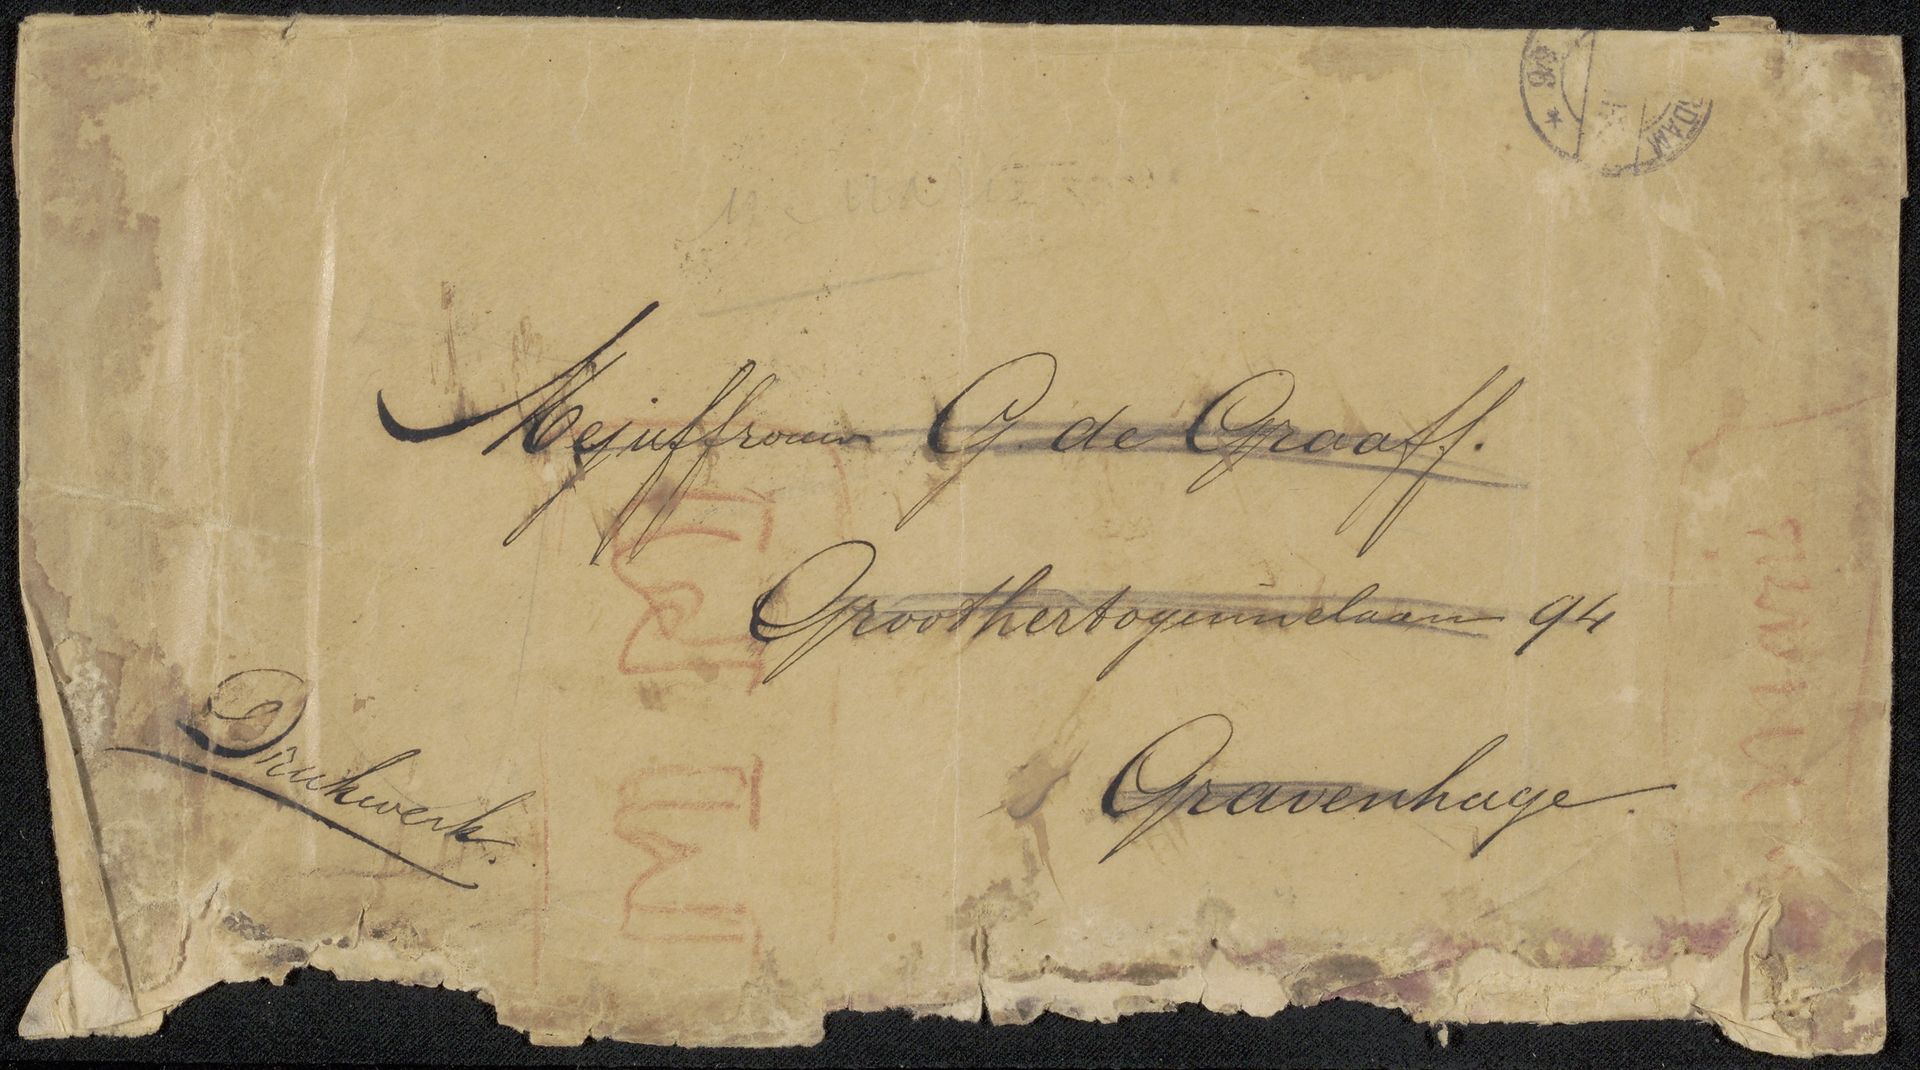 RDAM
Mejuffrouw G. de Graaff.
Groothertoginnelaan 94
Gravenhage.
Drukwerk.